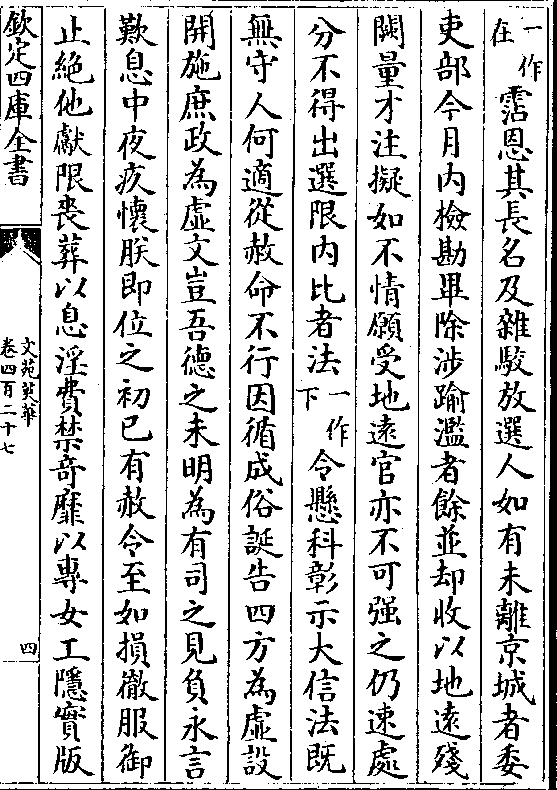 一作在霑恩其長名及雜駮放選人如有未離京城者委
吏部今月内檢勘畢除涉踰濫者餘並却收以地遠殘
闕量才注擬如不情願受地遠官亦不可强之仍速處
分不得出選限内比者法一作下令懸科彰示大信法既
無守人何適從赦命不行因循成俗誕告四方為虚設
開施庶政為虚文豈吾德之未明為有司之見負永言
歎息中夜疚懷朕即位之初已有赦令至如損徹服御
止絶他獻限喪葬以息淫費禁奇靡以專女工隱實版
欽定四庫全書
文苑英華
卷四百二十七
四